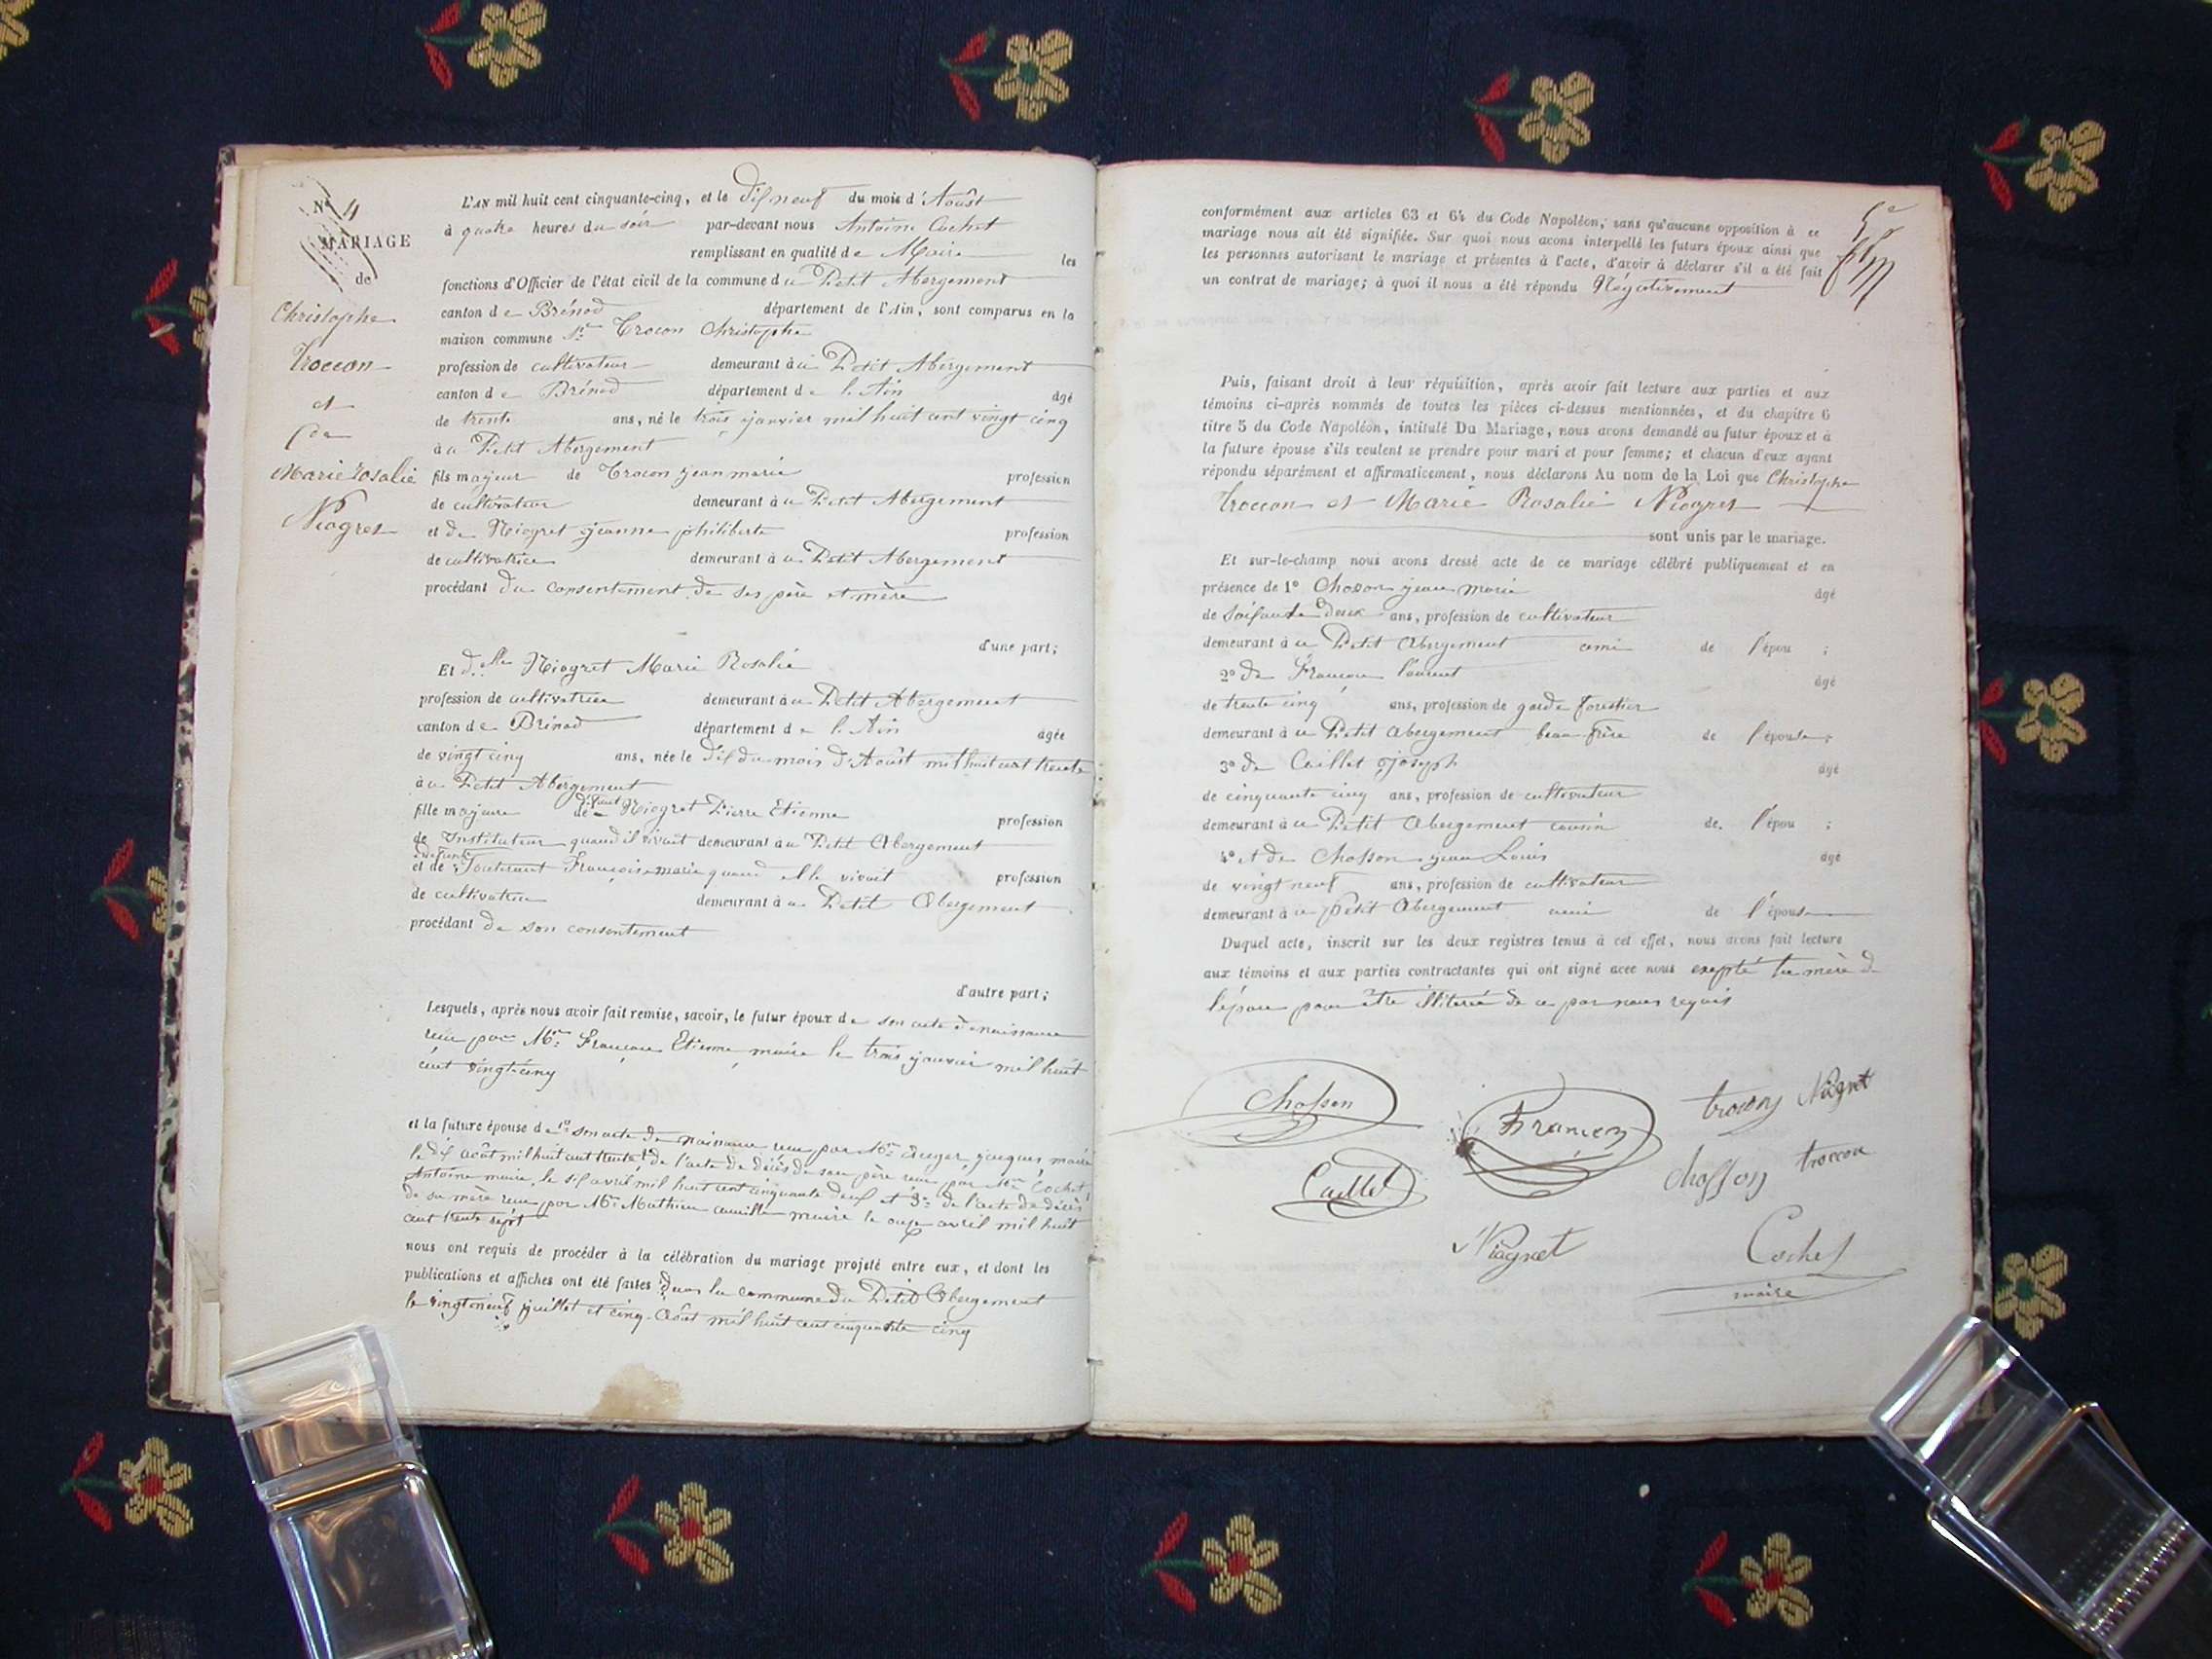 N° 4
MARIAGE
de
Christophe
Troccon
et
Marie Rosalie
Niogret
L'AN mil huit cent cinquante-cinq, et le dix neuf du mois d'Août
à quatre heures du soir par-devant nous Antoine Cochet
remplissant en qualité de Maire les
fonctions d'Officier de l'état civil de la commune du Petit Abergement
canton de Brénod département de l'Ain, sont comparus en la
maison commune Sr. Trocon Christophe
profession de cultivateur demeurant à u Petit Abergement
canton de Brénod département de l'Ain âgé
de trente ans, né le trois janvier mil huit cent vingt cinq
à u Petit Abergement
fils majeur de Trocon jean marie profession
de cultivateur demeurant à u Petit Abergement
et de Niogret jeanne philiberte profession
de cultivatrice demeurant à u Petit Abergement
procédant du consentement de ses père et mère
d'une part;
Et d.elle Niogret Marie Rosalie
profession de cultivatrice demeurant à u Petit Abergement
canton de Brénod département de l'Ain âgée
de vingt cinq ans, née le dix du mois d'Août mil huit cent trente
à u Petit Abergement
fille majeure de défunt Niogret Pierre Etienne profession
de Instituteur quand il vivait demeurant à u Petit Abergement
et de défunte Françoise marie quand elle vivait profession
de cultivatrice demeurant à u Petit Abergement
procédant de son consentement
d'autre part;
Lesquels, après nous avoir fait remise, savoir, le futur époux de son acte de naissance
reçu par Mr. Françon Etienne, maire le trois janvier mil huit
cent vingt-cinq
et la future épouse de 1° son acte de naissance reçu par Mr. jacques, maire
le dix août mil huit cent trente de l'acte de décès de son père reçu par Mr. Cochet
Antoine maire, le six avril mil huit cent cinquante deux et 3° de l'acte de décès
de sa mère reçu par Mr. Mathieu camille maire le onze avril mil huit
cent trente sept
nous ont requis de procéder à la célébration du mariage projeté entre eux, et dont les
publications et affiches ont été faites dans la commune du Petit Abergement
le vingt neuf juillet et cinq Août mil huit cent cinquante cinq
conformément aux articles 63 et 64 du Code Napoléon, sans qu'aucune opposition à ce
mariage nous ait été signifiée. Sur quoi nous avons interpellé les futurs époux ainsi que
les personnes autorisant le mariage et présentes à l'acte, d'avoir à déclarer s'il a été fait
un contrat de mariage; à quoi il nous a été répondu Négativement
Puis, faisant droit à leur réquisition, après avoir fait lecture aux parties et aux
témoins ci-après nommés de toutes les pièces ci-dessus mentionnées, et du chapitre 6
titre 5 du Code Napoléon, intitulé Du Mariage, nous avons demandé au futur époux et à
la future épouse s'ils veulent se prendre pour mari et pour femme; et chacun d'eux ayant
répondu séparément et affirmativement, nous déclarons Au nom de la Loi que Christophe
Troccon et Marie Rosalie Niogret
sont unis par le mariage.
Et sur-le-champ nous avons dressé acte de ce mariage célébré publiquement et en
présence de 1° Chosson jean marie âgé
de soixante deux ans, profession de cultivateur
demeurant à u Petit Abergement ami de l'épou ;
2° de Françon laurent âgé
de trente cinq ans, profession de garde forestier
demeurant à u Petit Abergement beau frère de l'épouse;
3° de Caillet joseph âgé
de cinquante cinq ans, profession de cultivateur
demeurant à u Petit Abergement cousin de l'épou ;
4° et de Chosson jean Louis âgé
de vingt neuf ans, profession de cultivateur
demeurant à u Petit Abergement ami de l'épouse
Duquel acte, inscrit sur les deux registres tenus à cet effet, nous avons fait lecture
aux témoins et aux parties contractantes qui ont signé avec nous excepté la mère de
l'époux pour être illiterée de ce par nous requis
Chosson
Françon
trocon Niogret
Caillet
Chosson troccon
Niogret
Cochet
maire